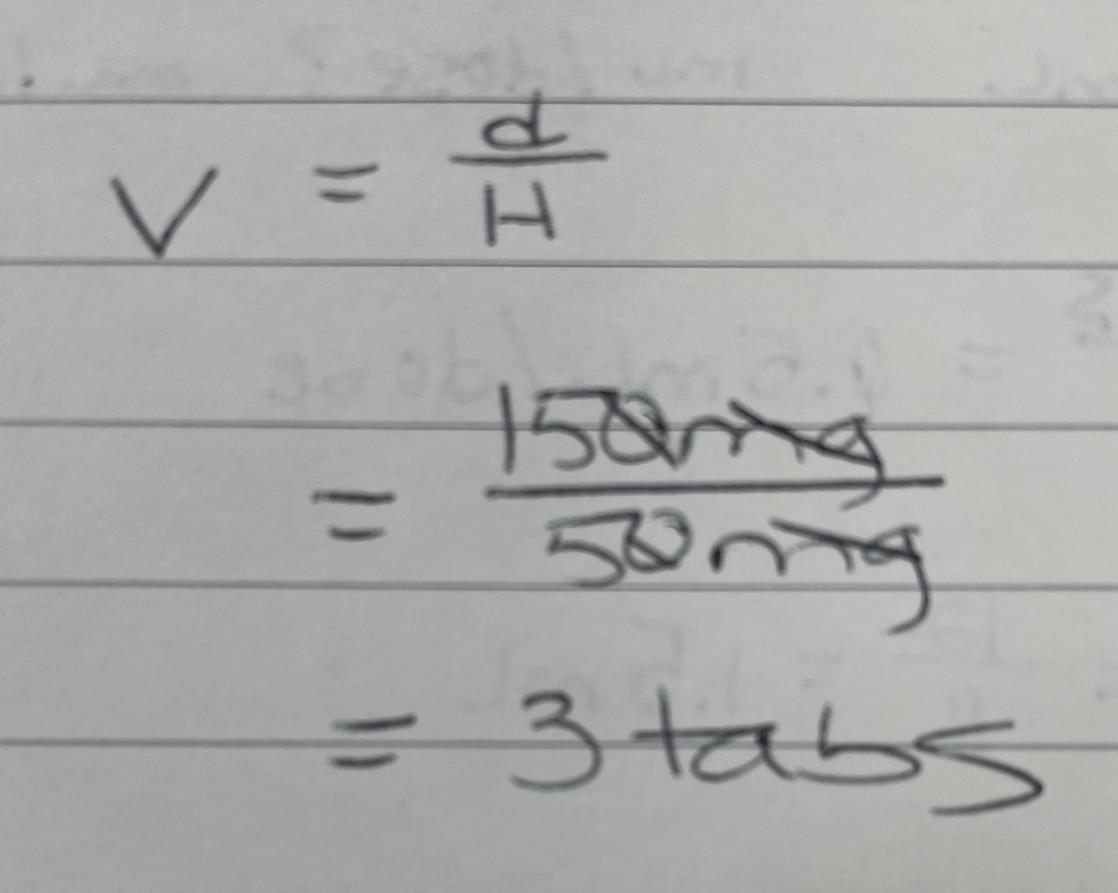 V = d/H
= 150mg/50mg
= 3 tabs